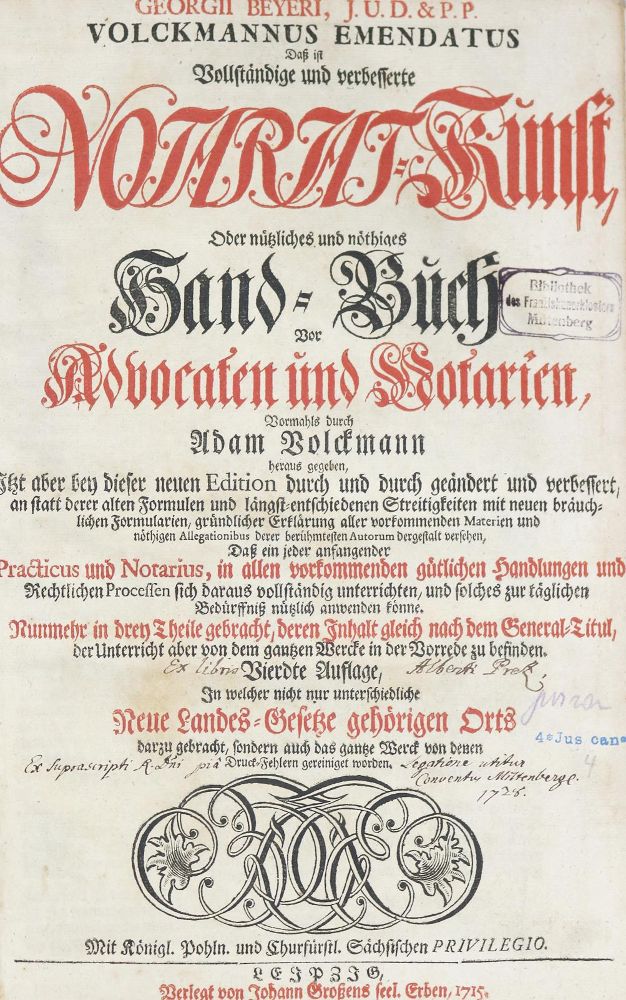 GEORGII BEYERI, J. U. D. & P. P.
VOLCKMANNUS EMENDATUS
Daß ist
Vollständige und verbesserte
NOTARIAT-Kunst,
Oder nützliches und nöthiges
Hand-Buch
Vor
Advocaten und Notarien,
Vormahls durch
Adam Volckmann
heraus gegeben,
Itzt aber bey dieser neuen Edition durch und durch geändert und verbessert,
an statt derer alten Formulen und längst-entschiedenen Streitigkeiten mit neuen bräuch-
lichen Formularien, gründlicher Erklärung aller vorkommenden Materien und
nöthigen Allegationibus derer berühmtesten Autorum dergestalt versehen,
Daß ein jeder anfangender
Practicus und Notarius, in allen vorkommenden gütlichen Handlungen und
Rechtlichen Processen sich daraus vollständig unterrichten, und solches zur täglichen
Bedürffniß nützlich anwenden könne.
Nunmehr in drey Theile gebracht, deren Inhalt gleich nach dem General-Titul,
der Unterricht aber von dem gantzen Wercke in der Vorrede zu befinden.
Ex libris Vierdte Auflage, Alberti
In welcher nicht nur unterschiedliche
Neue Landes-Gesetze gehörigen Orts
darzu gebracht, sondern auch das gantze Werck von denen
Druck-Fehlern gereiniget worden.
Ex suprascripti R. Dni piâ Legatione utitur
Conventus Miltenberge.
1728.
Bibliothek
des Franziskanerklosters
Miltenberg
4° Jus can
4
Mit Königl. Pohln. und Churfürstl. Sächsischen PRIVILEGIO.
LEIPZIG,
Verlegt von Johann Großens seel. Erben, 1715.